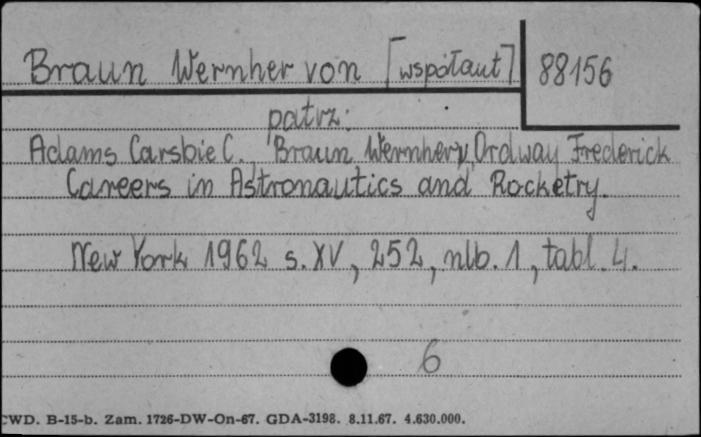 Braun Wernher von [współaut] 88156
patrz:
Adams Carsbie C., Braun Wernher v, Ordway Frederick
Careers in Astronautics and Rocketry.
New York 1962 s. XV, 252, nlb. 1, tabl. 4.
6
CWD. B-15-b. Zam. 1726-DW-On-67. GDA-3198. 8.11.67. 4.630.000.